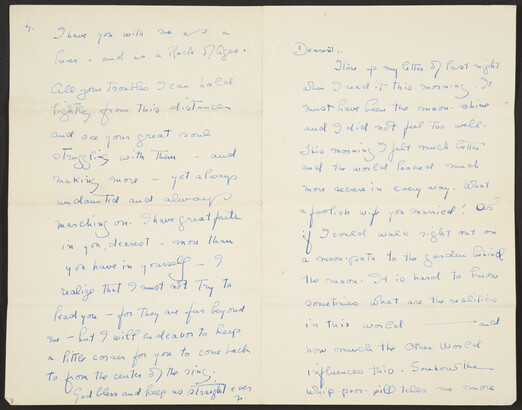 4.
I have you with me as a
 - and as a Rock of Ages.
All your troubles I can hold
lightly from this distance
and see your great soul
struggling with them - and
making more - yet always
undaunted and always
marching on. I have great faith
in you, dearest - more than
you have in yourself - I
realize that I must not try to
lead you - for they are far beyond
me - but I will endeavor to keep
a little corner for you to come back
to from the center of the ring.
God bless and keep us straight ever
Dearest..
I tore up my letter of last night
when I read it this morning. It
must have been the moon-shine
and I did not feel too well.
This morning I felt much better
and the world looked much
more secure in every way. What
a foolish wife you married! As
if I could walk right out on
a moon-path to the garden behind
the moon. It is hard to know
sometimes what are the realities
in this world ——— and
how much the other world
influences this. Somehow the
whip-poor-will takes me more